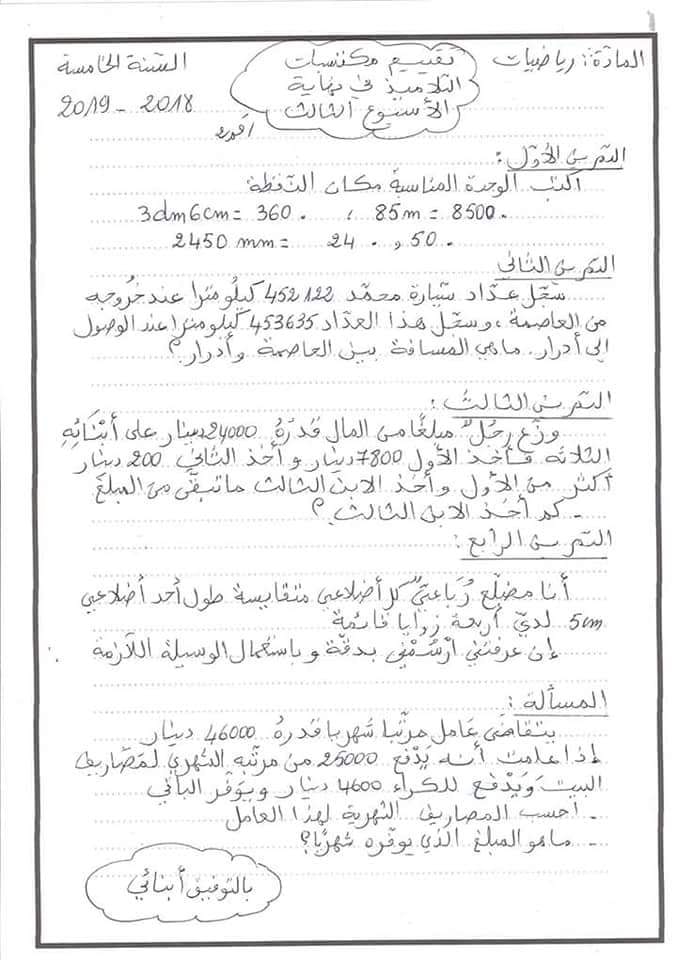 المادة: رياضيات
تقييم مكتسبات
التلاميذ في نهاية
الأسبوع الثالث
السنة الخامسة
2018 - 2019
التمرين الأول:
أكتب الوحدة المناسبة مكان النقطة
3dm6cm = 360 . ، 85m = 8500.
2450 mm = 24 . و 50 .
التمرين الثاني
سجّل عدّاد سيّارة محمّد 452122 كيلومترا عند خروجه
من العاصمة، وسجّل هذا العدّاد 453635 كيلومترا عند الوصول
إلى أدرار. ماهي المسافة بين العاصمة وأدرار؟
التمرين الثالث:
وزّع رجلٌ مبلغًا من المال قدرهُ 24000 دينار على أبْنَائِهِ
الثلاثة فأخذ الأول 7800 دينار وأخذ الثاني 200 دينار
أكثر من الأول وأخذ الابن الثالث ما تبقّى من المبلغ
- كم أخذ الابن الثالث؟
التمرين الرابع:
أنا مضلّع رُباعيٌّ كل أضلاعي متقايسة طول أحد أضلاعي
5cm لديّ أربعة زوايا قائمة
إن عرفتني ارْسُمْني بدقّة وباستعمال الوسيلة اللازمة
المسألة:
يتقاضى عامل مرتّبا شهريا قدرهُ 46000 دينار
إذا علمت أنه يَدْفع 25000 من مرتّبه الشهري لمصاريف
البيت وَيَدْفع للكراء 4600 دينار ويوفّر الباقي
- أحسب المصاريف الشهرية لهذا العامل
- ماهو المبلغ الذي يوفّره شهريًّا؟
بالتوفيق أبنائي